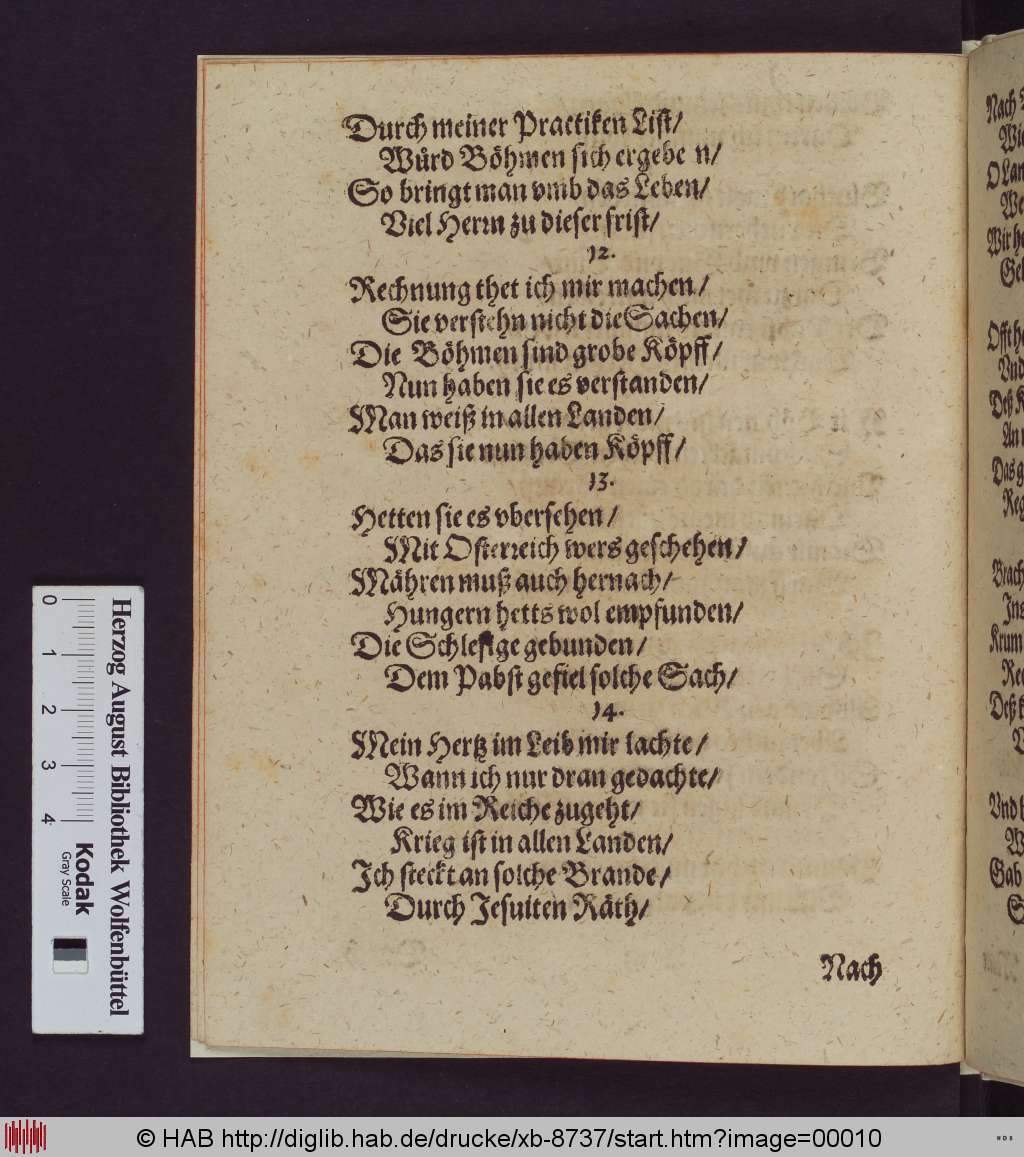 Durch meiner Practiken List/
Würd Böhmen sich ergebe n/
So bringt man vmb das Leben/
Viel Herrn zu dieser frist/
12.
Rechnung thet ich mir machen/
Sie verstehn nicht die Sachen/
Die Böhmen sind grobe Köpff/
Nun haben sie es verstanden/
Man weiß in allen Landen/
Das sie nun haben Köpff/
13.
Hetten sie es vbersehen/
Mit Osterreich wers geschehen/
Mähren muß auch hernach/
Hungern hetts wol empfunden/
Die Schlesige gebunden/
Dem Pabst gefiel solche Sach/
14.
Mein Hertz im Leib mir lachte/
Wann ich nur dran gedachte/
Wie es im Reiche zugeht/
Krieg ist in allen Landen/
Ich steckt an solche Brande/
Durch Jesuiten Räth/
Nach
Nach
Wie
O Lan
We
Wir he
Gel
Offt he
Vnd
Deß K
An
Das g
Reg
Brach
Ins
Krum
Rec
Deß k
Vnd
W
Gab
S
Herzog August Bibliothek Wolfenbüttel
0 1 2 3 4
Kodak
Gray Scale
© HAB http://diglib.hab.de/drucke/xb-8737/start.htm?image=00010